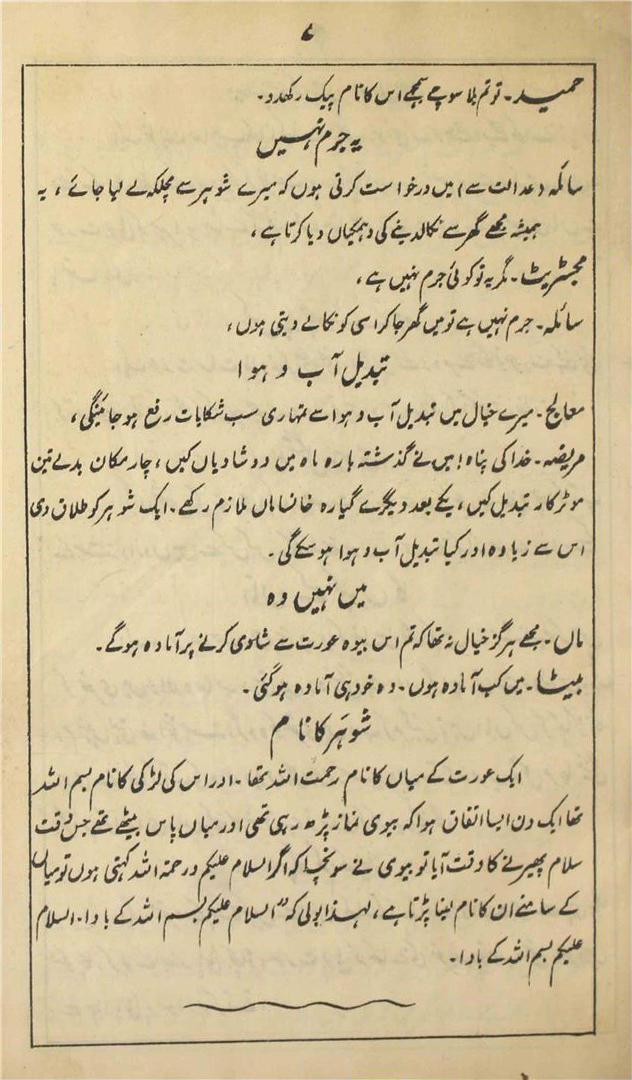 ۷
حمید۔ تو تم بلا سوچے سمجھے اس کا نام پیک رکھدو۔
یہ جرم نہیں
سائلہ (عدالت سے) میں درخواست کرتی ہوں کہ میرے شوہر سے مچلکہ لے لیا جائے، یہ
ہمیشہ مجھے گھر سے نکالدینے کی دھمکیاں دیا کرتا ہے،
مجسٹریٹ۔ مگر یہ تو کوئی جرم نہیں ہے،
سائلہ۔ جرم نہیں ہے تو میں گھر جاکر اسی کو نکالے دیتی ہوں،
تبدیل آب و ہوا
معالج۔ میرے خیال میں تبدیل آب و ہوا سے تمہاری سب شکایات رفع ہوجائینگی،
مریضہ۔ خدا کی پناہ! میں نے گذشتہ بارہ ماہ میں دو شادیاں کیں، چار مکان بدلے تین
موٹر کار تبدیل کیں، یکے بعد دیگرے گیارہ خانساماں ملازم رکھے۔ ایک شوہر کو طلاق دی
اس سے زیادہ اور کیا تبدیل آب و ہوا ہوسکے گی۔
میں نہیں وہ
ماں۔ مجھے ہرگز خیال نہ تھا کہ تم اس بیوہ عورت سے شادی کرنے پر آمادہ ہوگے۔
بیٹا۔ میں کب آمادہ ہوں۔ وہ خود ہی آمادہ ہوگئی۔
شوہر کا نام
ایک عورت کے میاں کا نام رحمت اللہ تھا۔ اور اس کی لڑکی کا نام بسم اللہ
تھا ایک دن ایسا اتفاق ہوا کہ بیوی نماز پڑھ رہی تھی اور میاں پاس بیٹھے تھے جس وقت
سلام پھیرنے کا وقت آیا تو بیوی نے سونچا کہ اگر السلام علیکم ورحمۃ اللہ کہتی ہوں تو میاں
کے سامنے ان کا نام لینا پڑتا ہے، لہذا بولی کہ "السلام علیکم بسم اللہ کے باوا۔ السلام
علیکم بسم اللہ کے باوا۔